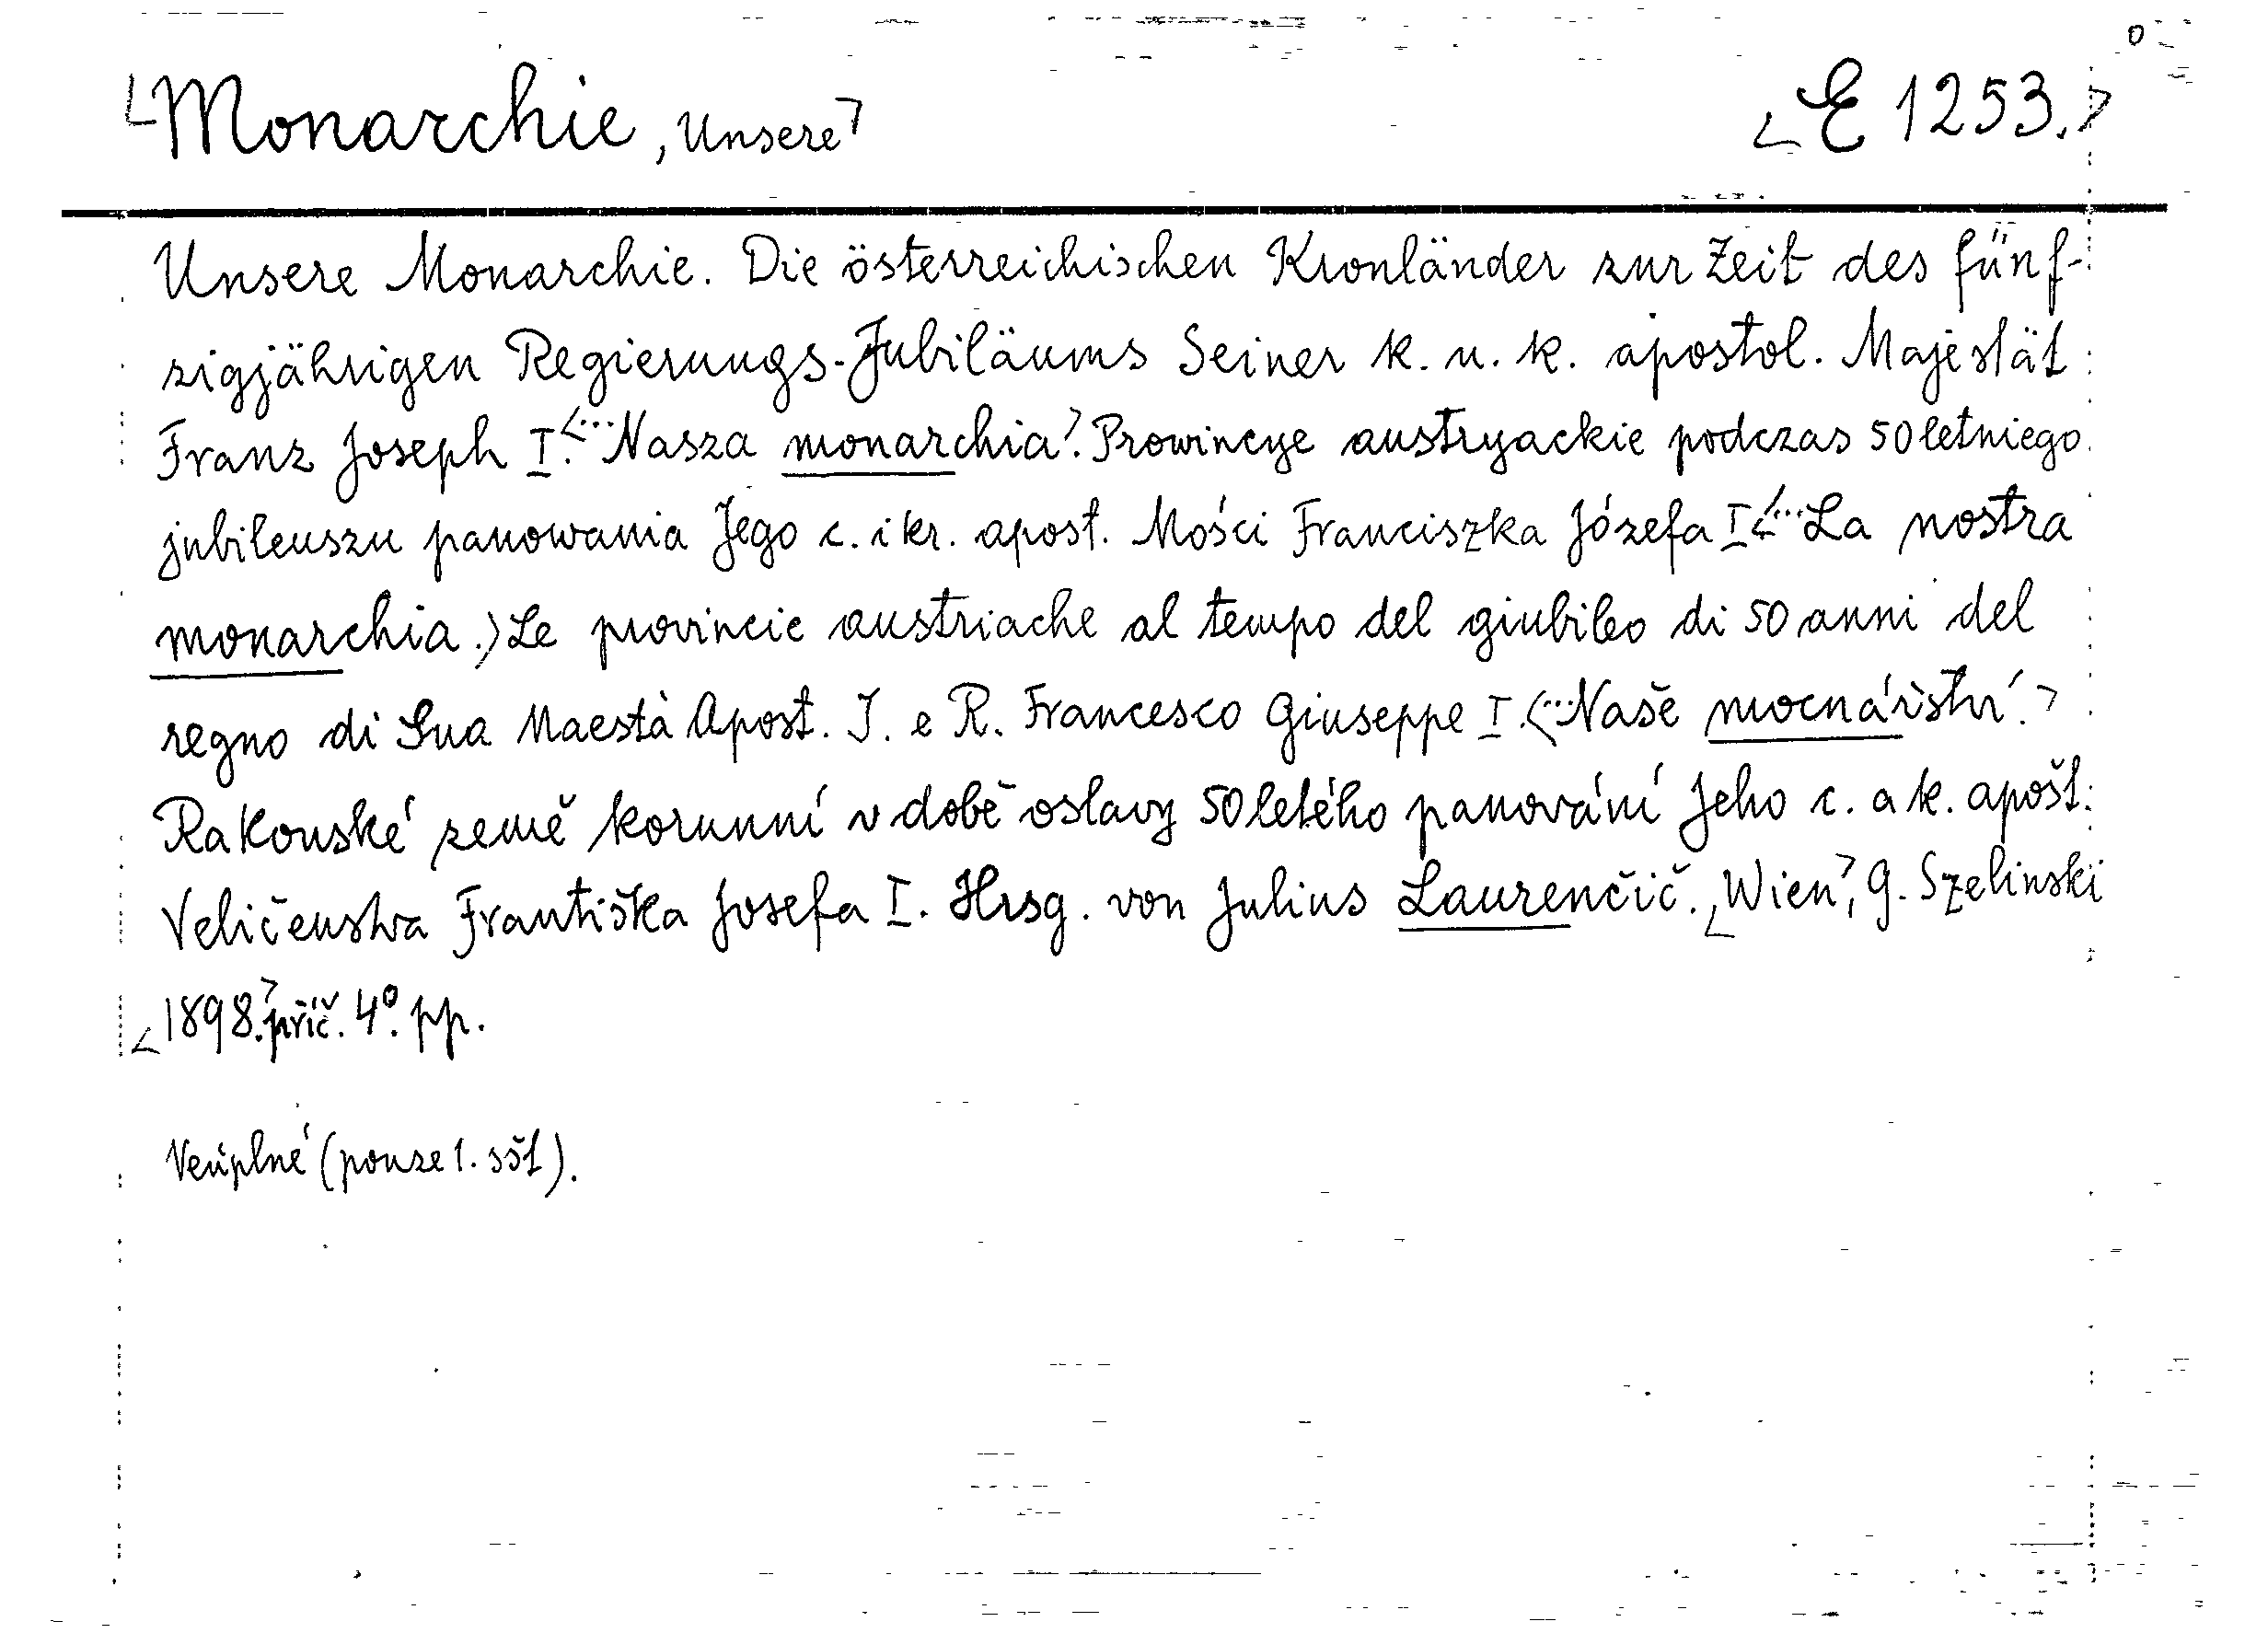 Monarchie, Unsere
E 1253.
Unsere Monarchie. Die österreichischen Kronländer zur Zeit des fünf-
zigjährigen Regierungs-Jubiläums Seiner k. u. k. apostol. Majestät
Franz Joseph I. <... Nasza monarchia.> Prowincye austryackie podczas 50letniego
jubileuszu panowania Jego c. i kr. apost. Mości Franciszka Józefa I. <... La nostra
monarchia.> Le provincie austriache al tempo del giubileo di 50 anni del
regno di Sua Maestà Apost. I. e R. Francesco Giuseppe I. <... Naše mocnářství.>
Rakouské země korunní v době oslavy 50letého panování Jeho c. a k. apošt.
Veličenstva Františka Josefa I. Hrsg. von Julius Laurenčič. <Wien>, G. Szelinski
<1898.> příč. 4°. pp.
Neúplné (pouze 1. sšt).